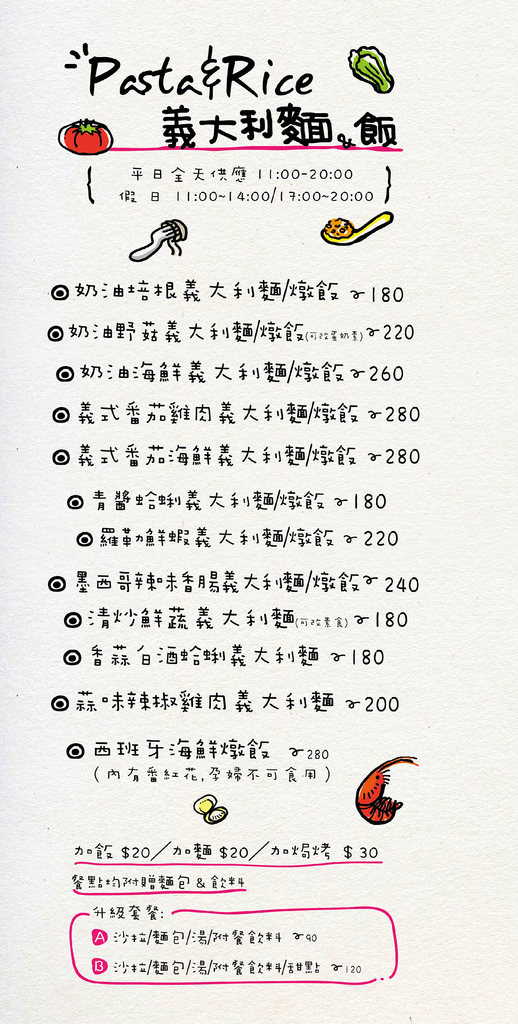 Pasta&Rice
義大利麵&飯
平日全天供應 11:00-20:00
假 日 11:00~14:00/17:00~20:00
奶油培根義大利麵/燉飯 ~180
奶油野菇義大利麵/燉飯(可改蛋奶素)~220
奶油海鮮義大利麵/燉飯~260
義式番茄雞肉義大利麵/燉飯~280
義式番茄海鮮義大利麵/燉飯~280
青醬蛤蜊義大利麵/燉飯~180
羅勒鮮蝦義大利麵/燉飯~220
墨西哥辣味香腸義大利麵/燉飯~240
清炒鮮蔬義大利麵(可改素食)~180
香蒜白酒蛤蜊義大利麵~180
蒜味辣椒雞肉義大利麵~200
西班牙海鮮燉飯 ~280
(內有番紅花,孕婦不可食用)
加飯 $20/加麵 $20/加焗烤 $30
餐點均附贈麵包 & 飲料
升級套餐:
A 沙拉/麵包/湯/附餐飲料 ~90
B 沙拉/麵包/湯/附餐飲料/甜點 ~120